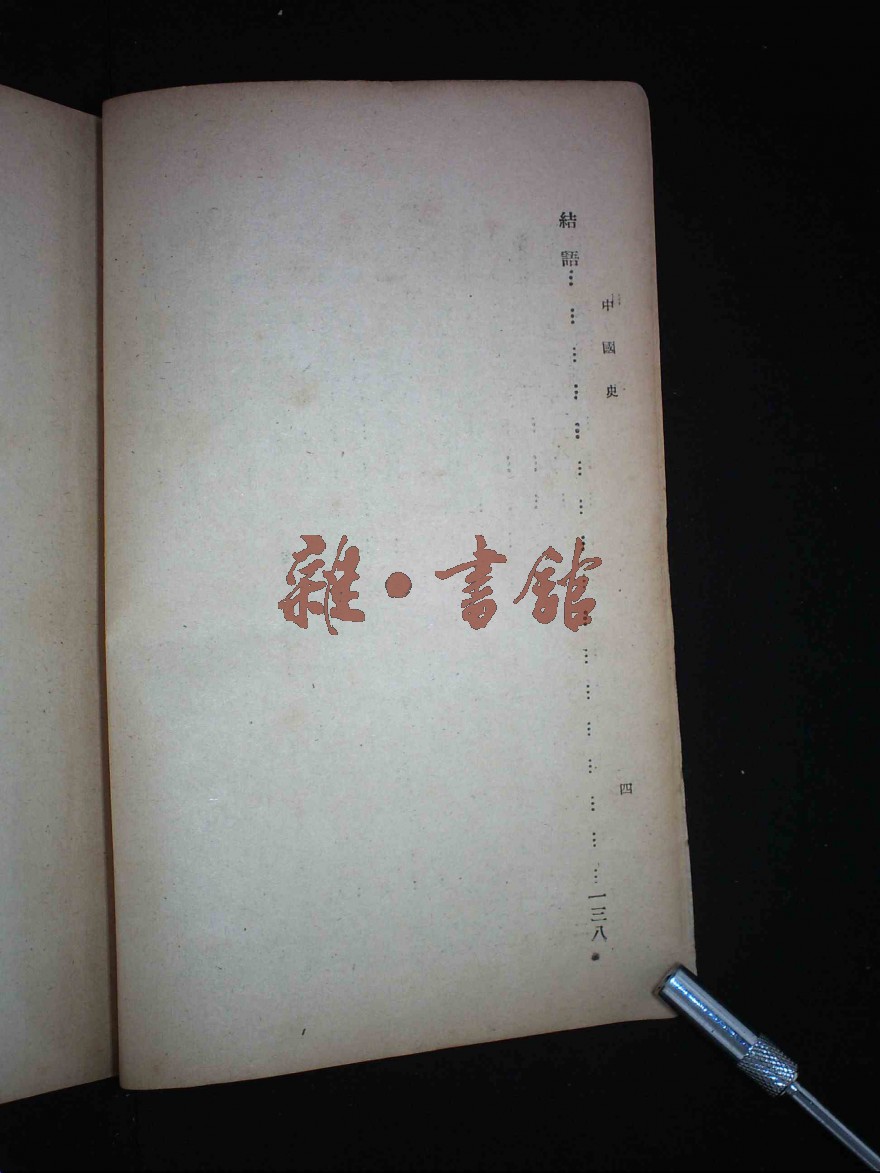 中國史
四
結語…………………………………………一三八
雜·書館